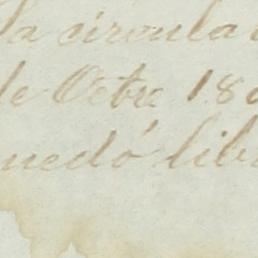 la circula
de Octre 18
quedó lib